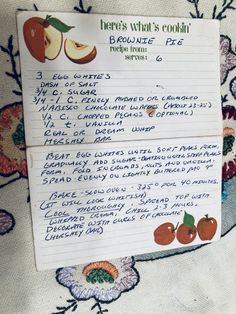 here's what's cookin'
BROWNIE PIE
recipe from:
serves: 6
3 EGG WHITES
DASH OF SALT
3/4 C. SUGAR
3/4 - 1 C. FINELY MASHED OR CRUMBLED
NABISCO CHOCOLATE WAFERS (ABOUT
1/2 C. CHOPPED PECANS (OPTIONAL)
1/2 t. VANILLA
REAL OR DREAM WHIP
HERSHEY BAR
BEAT EGG WHITES UNTIL SOFT PEAKS FORM,
GRADUALLY ADD SUGAR - BEATING UNTIL STIFF PEAKS
FORM, FOLD IN CRUMBS, NUTS AND VANILLA.
SPREAD EVENLY ON LIGHTLY BUTTERED PIE
BAKE - SLOW OVEN - 325° FOR 40 MINUTES.
(IT WILL LOOK WHITISH)
COOL THOROUGHLY. SPREAD TOP WITH
WHIPPED CREAM, CHILL 2-3 HOURS.
DECORATE WITH CURLS OF CHOCOLATE
(HERSHEY BAR)